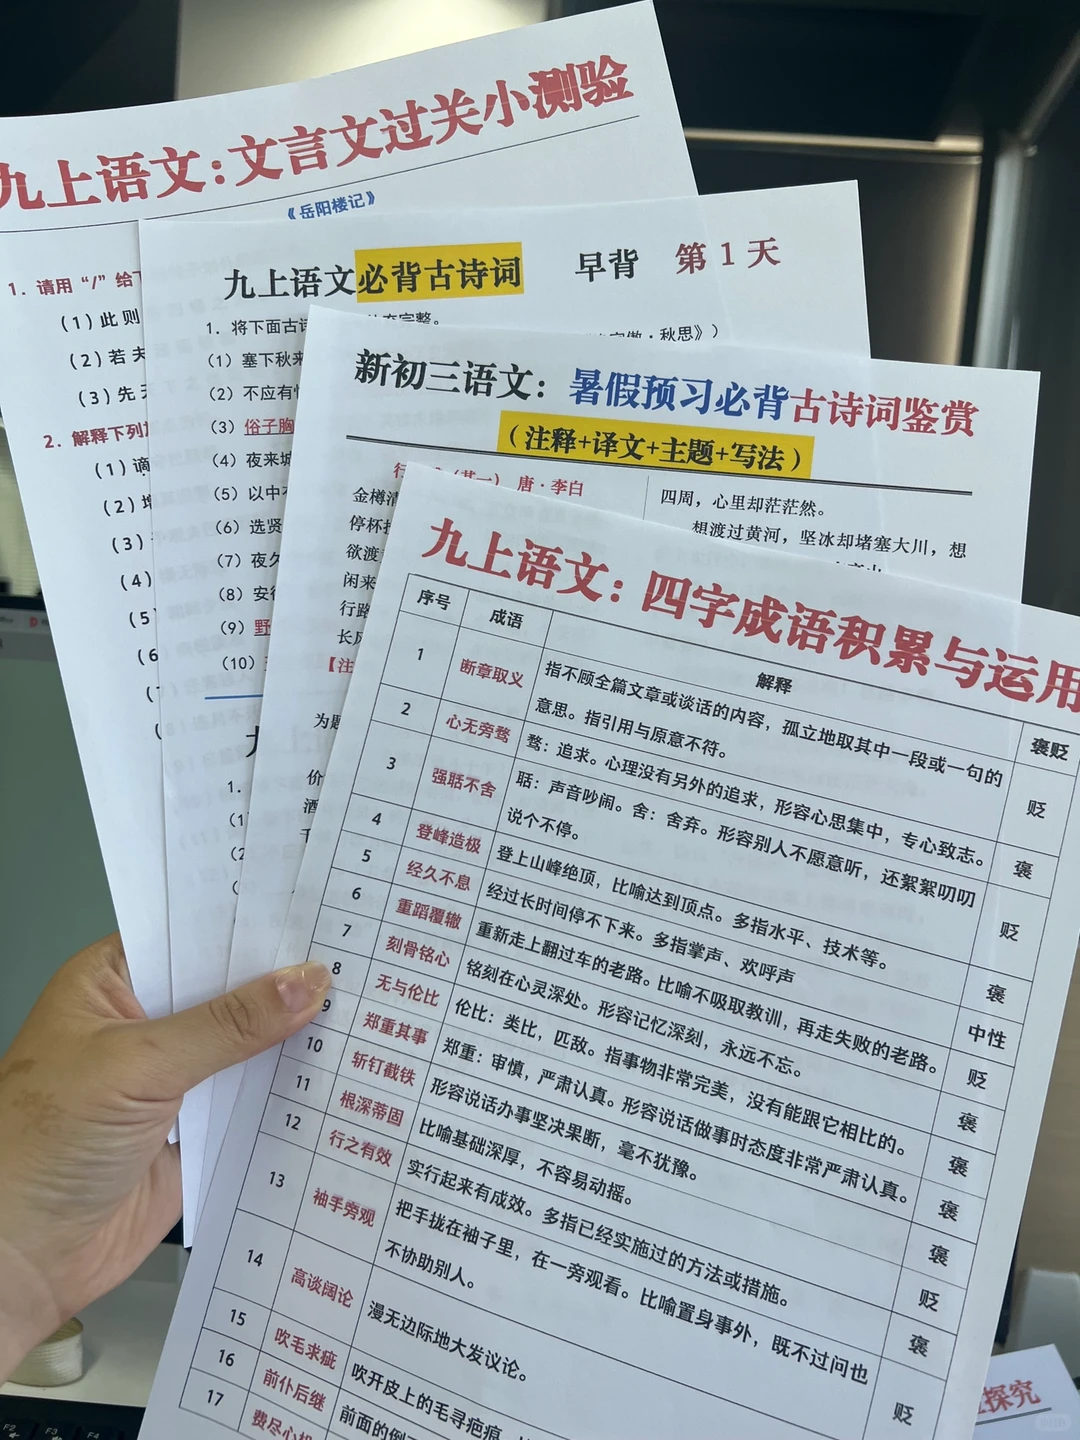 九上语文：文言文过关小测验
《岳阳楼记》
1. 请用“/”给
（1）此则
（2）若夫
（3）先
2. 解释下列
（1）谪
（2）增
（3）
（4）
（5
（6
九上语文必背古诗词 早背 第1天
1. 将下面古诗 完整。 秋思》）
（1）塞下秋来
（2）不应有
（3）俗子胸
（4）夜来城
（5）以中有
（6）选贤
（7）夜久
（8）安得
（9）野
（10）
1.
（1
（2
新初三语文：暑假预习必背古诗词鉴赏
（注释+译文+主题+写法）
行 （其一） 唐·李白
金樽清
停杯投
欲渡
闲来
行路
长风
【注
为题
价
酒
四周，心里却茫茫然。
想渡过黄河，坚冰却堵塞大川，想
九上语文：四字成语积累与运用
序号 成语 解释 褒贬
1 断章取义 指不顾全篇文章或谈话的内容，孤立地取其中一段或一句的
意思。指引用与原意不符。 贬
2 心无旁骛 骛：追求。心理没有另外的追求，形容心思集中，专心致志。 褒
3 强聒不舍 聒：声音吵闹。舍：舍弃。形容别人不愿意听，还絮絮叨叨
说个不停。 贬
4 登峰造极 登上山峰绝顶，比喻达到顶点。多指水平、技术等。 褒
5 经久不息 经过长时间停不下来。多指掌声、欢呼声 中性
6 重蹈覆辙 重新走上翻过车的老路。比喻不吸取教训，再走失败的老路。 贬
7 刻骨铭心 铭刻在心灵深处。形容记忆深刻，永远不忘。 褒
8 无与伦比 伦比：类比，匹敌。指事物非常完美，没有能跟它相比的。 褒
9 郑重其事 郑重：审慎，严肃认真。形容说话做事时态度非常严肃认真。 褒
10 斩钉截铁 形容说话办事坚决果断，毫不犹豫。 褒
11 根深蒂固 比喻基础深厚，不容易动摇。 贬
12 行之有效 实行起来有成效。多指已经实施过的方法或措施。 褒
13 袖手旁观 把手拢在袖子里，在一旁观看。比喻置身事外，既不过问也
不协助别人。 贬
14 高谈阔论 漫无边际地大发议论。
15 吹毛求疵 吹开皮上的毛寻疤痕，
16 前仆后继 前面的倒
17 费尽心机
探究
F2 F3 F4